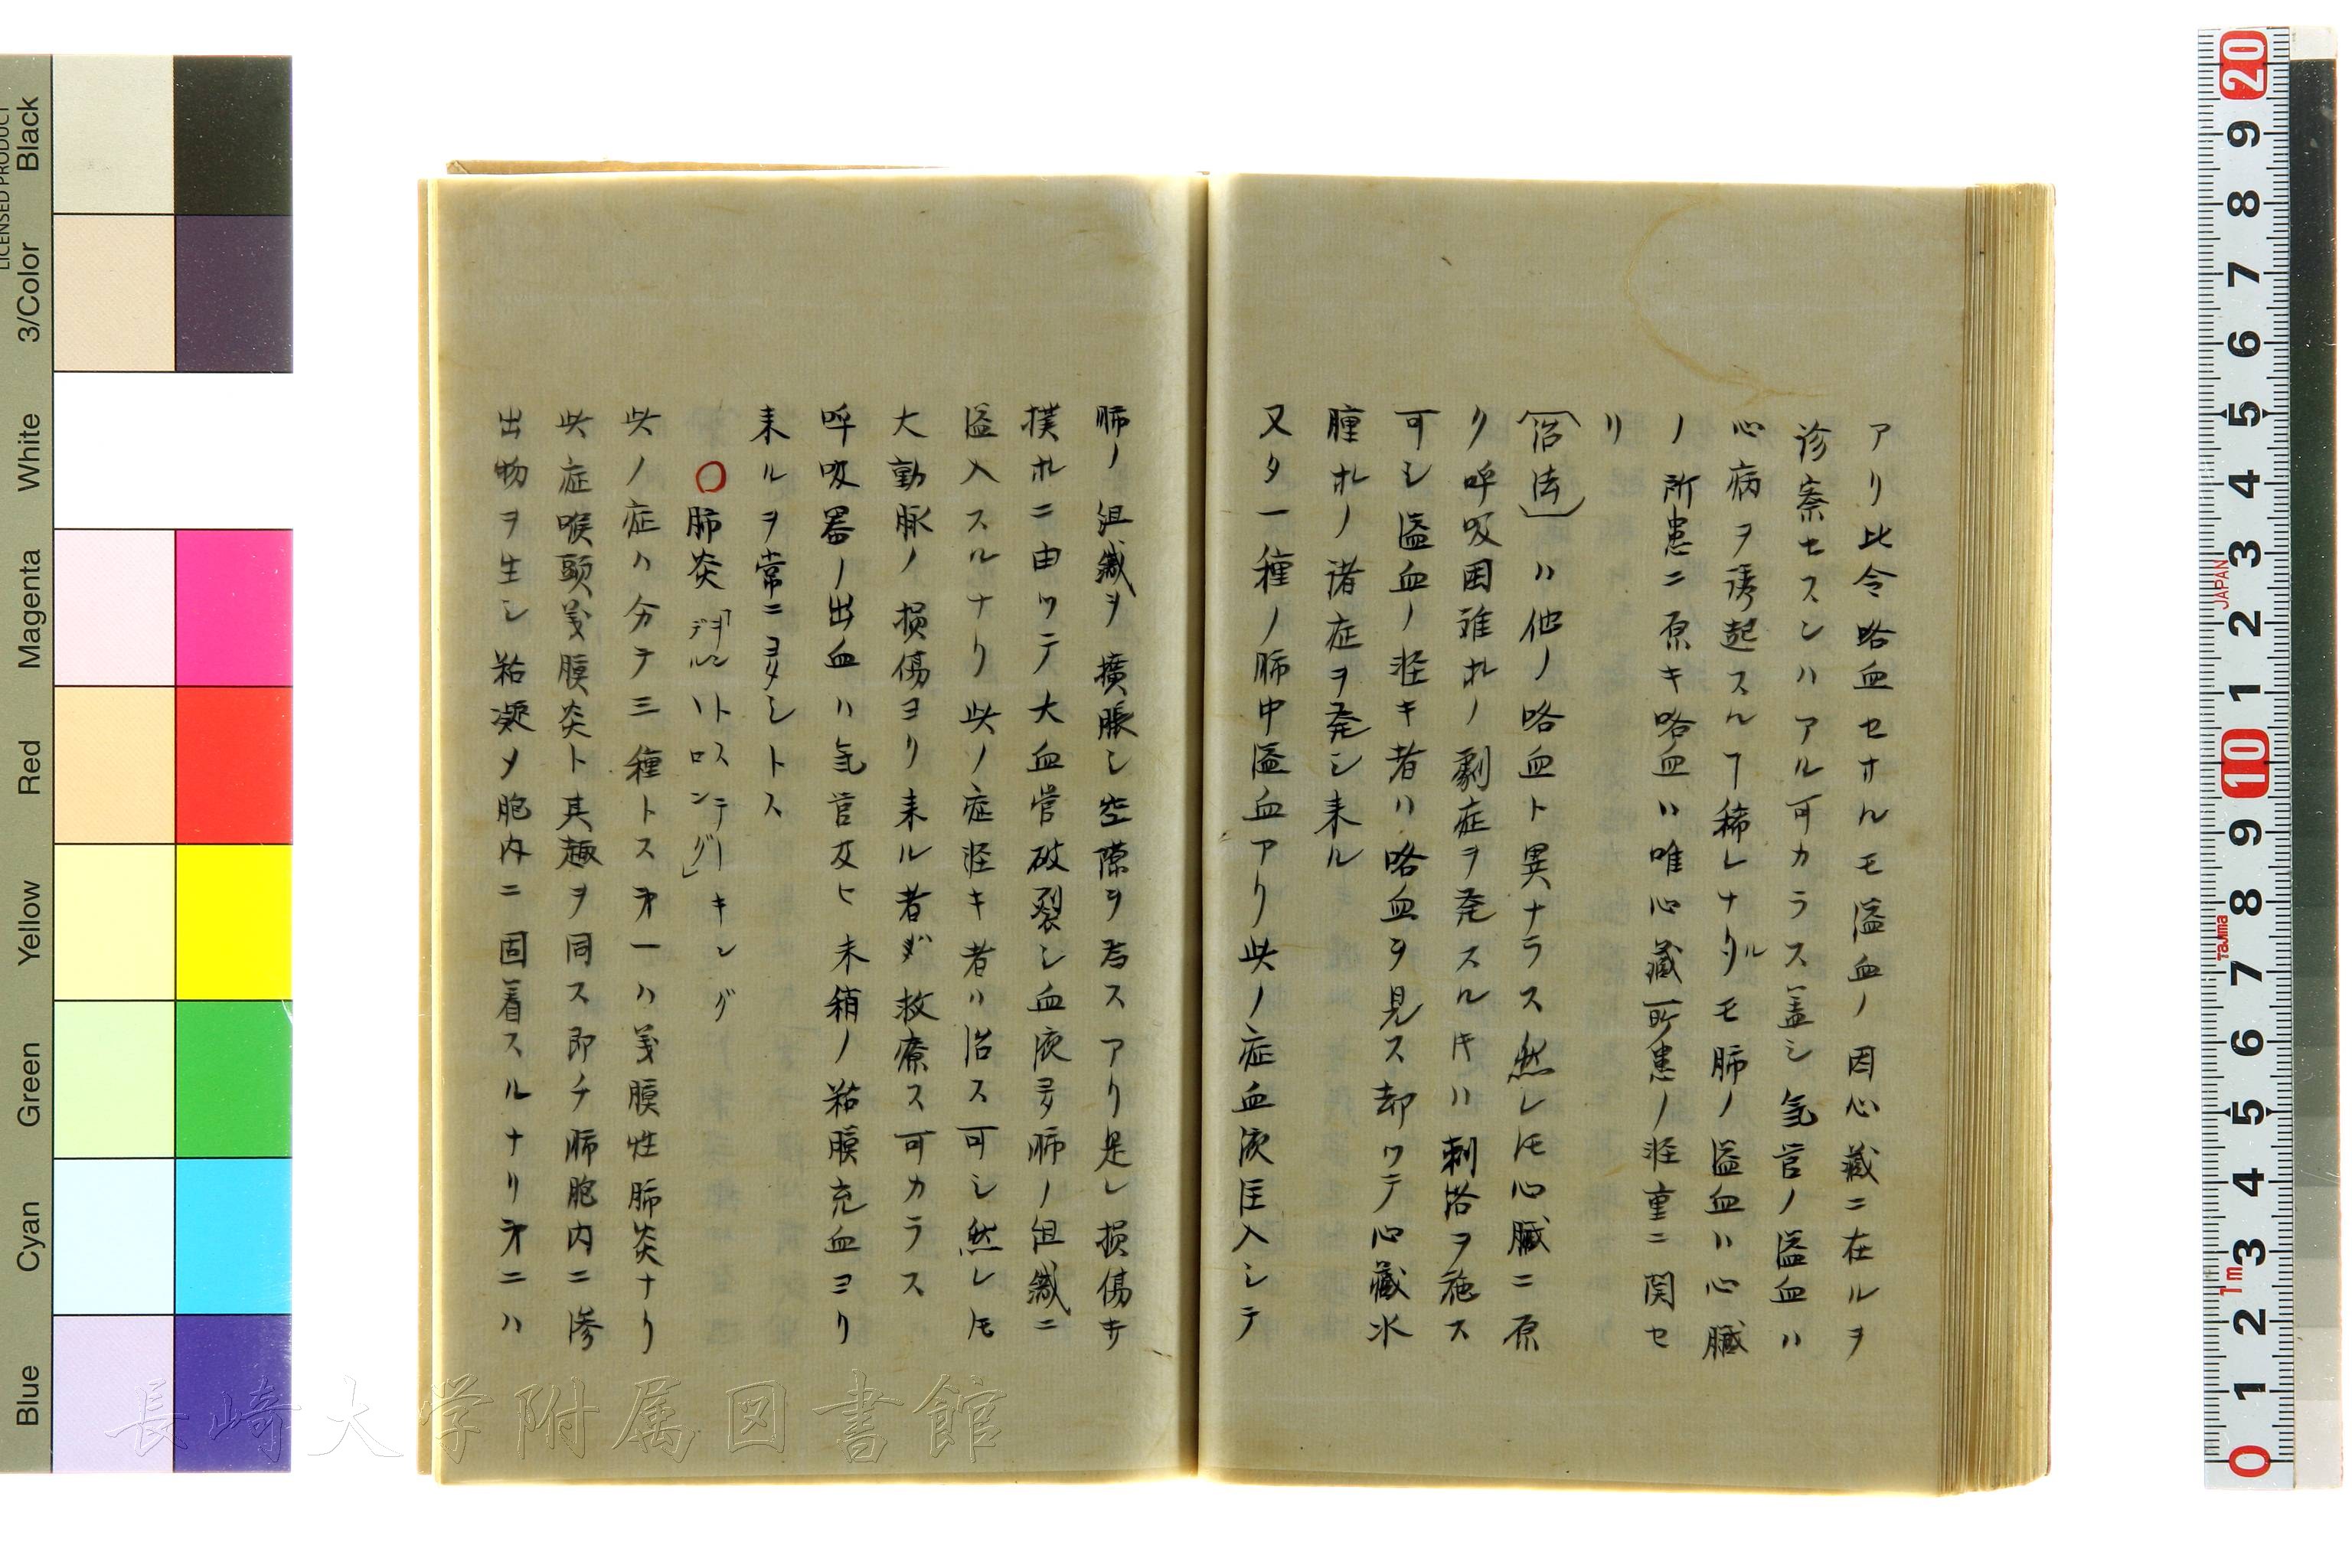 アリ比令咯血セサルモ溢血ノ因心蔵ニ在ルヲ
診察セスンハアル可カラス蓋シ気管ノ溢血ハ
心病ヲ誘起スルヿ稀レナリルモ肺ノ溢血ハ心臓
ノ所患ニ原キ咯血ハ唯心蔵所患ノ軽重ニ関セ
リ
治法ハ他ノ咯血ト異ナラス然レ𪜈心臓ニ原
ク呼吸困難ホノ劇症ヲ発スルキハ刺絡ヲ施ス
可シ溢血ノ軽キ者ハ咯血ヲ見ス却ツテ心蔵水
腫ホノ諸症ヲ発シ来ル
又タ一種ノ肺中溢血アリ此ノ症血液圧入シテ
肺ノ組織ヲ擴脹シ空隙ヲ為スアリ是レ損傷
撲ホニ由ツテ大血管破裂シ血液肺ノ組織ニ
溢入スルナリ此ノ症軽キ者ハ治ス可シ然レ𪜈
大動脈ノ損傷ヨリ来ル者ダ救療ス可カラス
呼吸器ノ出血ハ気管及ヒ末稍ノ粘膜充血ヨリ
来ルヲ常ニシトス
〇肺炎
此ノ症ハ分テ三種トス第一ハ義膜性肺炎ナリ
此症喉頭義膜炎ト其趣ヲ同ス即チ肺胞内ニ滲
出物ヲ生シ粘凝メ胞内ニ固着スルナリ第二ハ
Black
3/Color
White
Magenta
Red
Yellow
Green
Cyan
Blue
LICENSED PRODUCT
長崎大学附属図書館
20
9
8
7
6
5
4
3
2
1
10
9
8
7
6
5
4
3
2
1
0
JAPAN
Tajima
1m